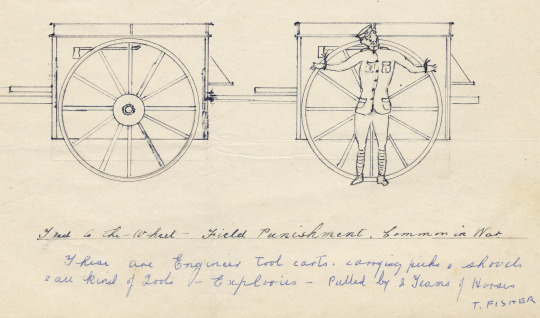 Tyed to the Wheel - Field Punishment. Common in War
These are Engineer Tool carts. carrying picks & shovels
& all kind of Tools - Explosives - Pulled by 2 Teams of Horses
T. FISHER